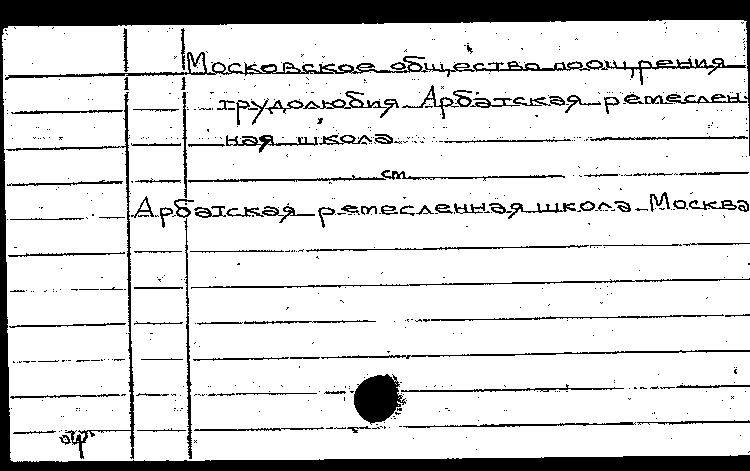 Московское общество поощрения
трудолюбия. Арбатская ремеслен-
ная школа
см.
Арбатская ремесленная школа. Москва